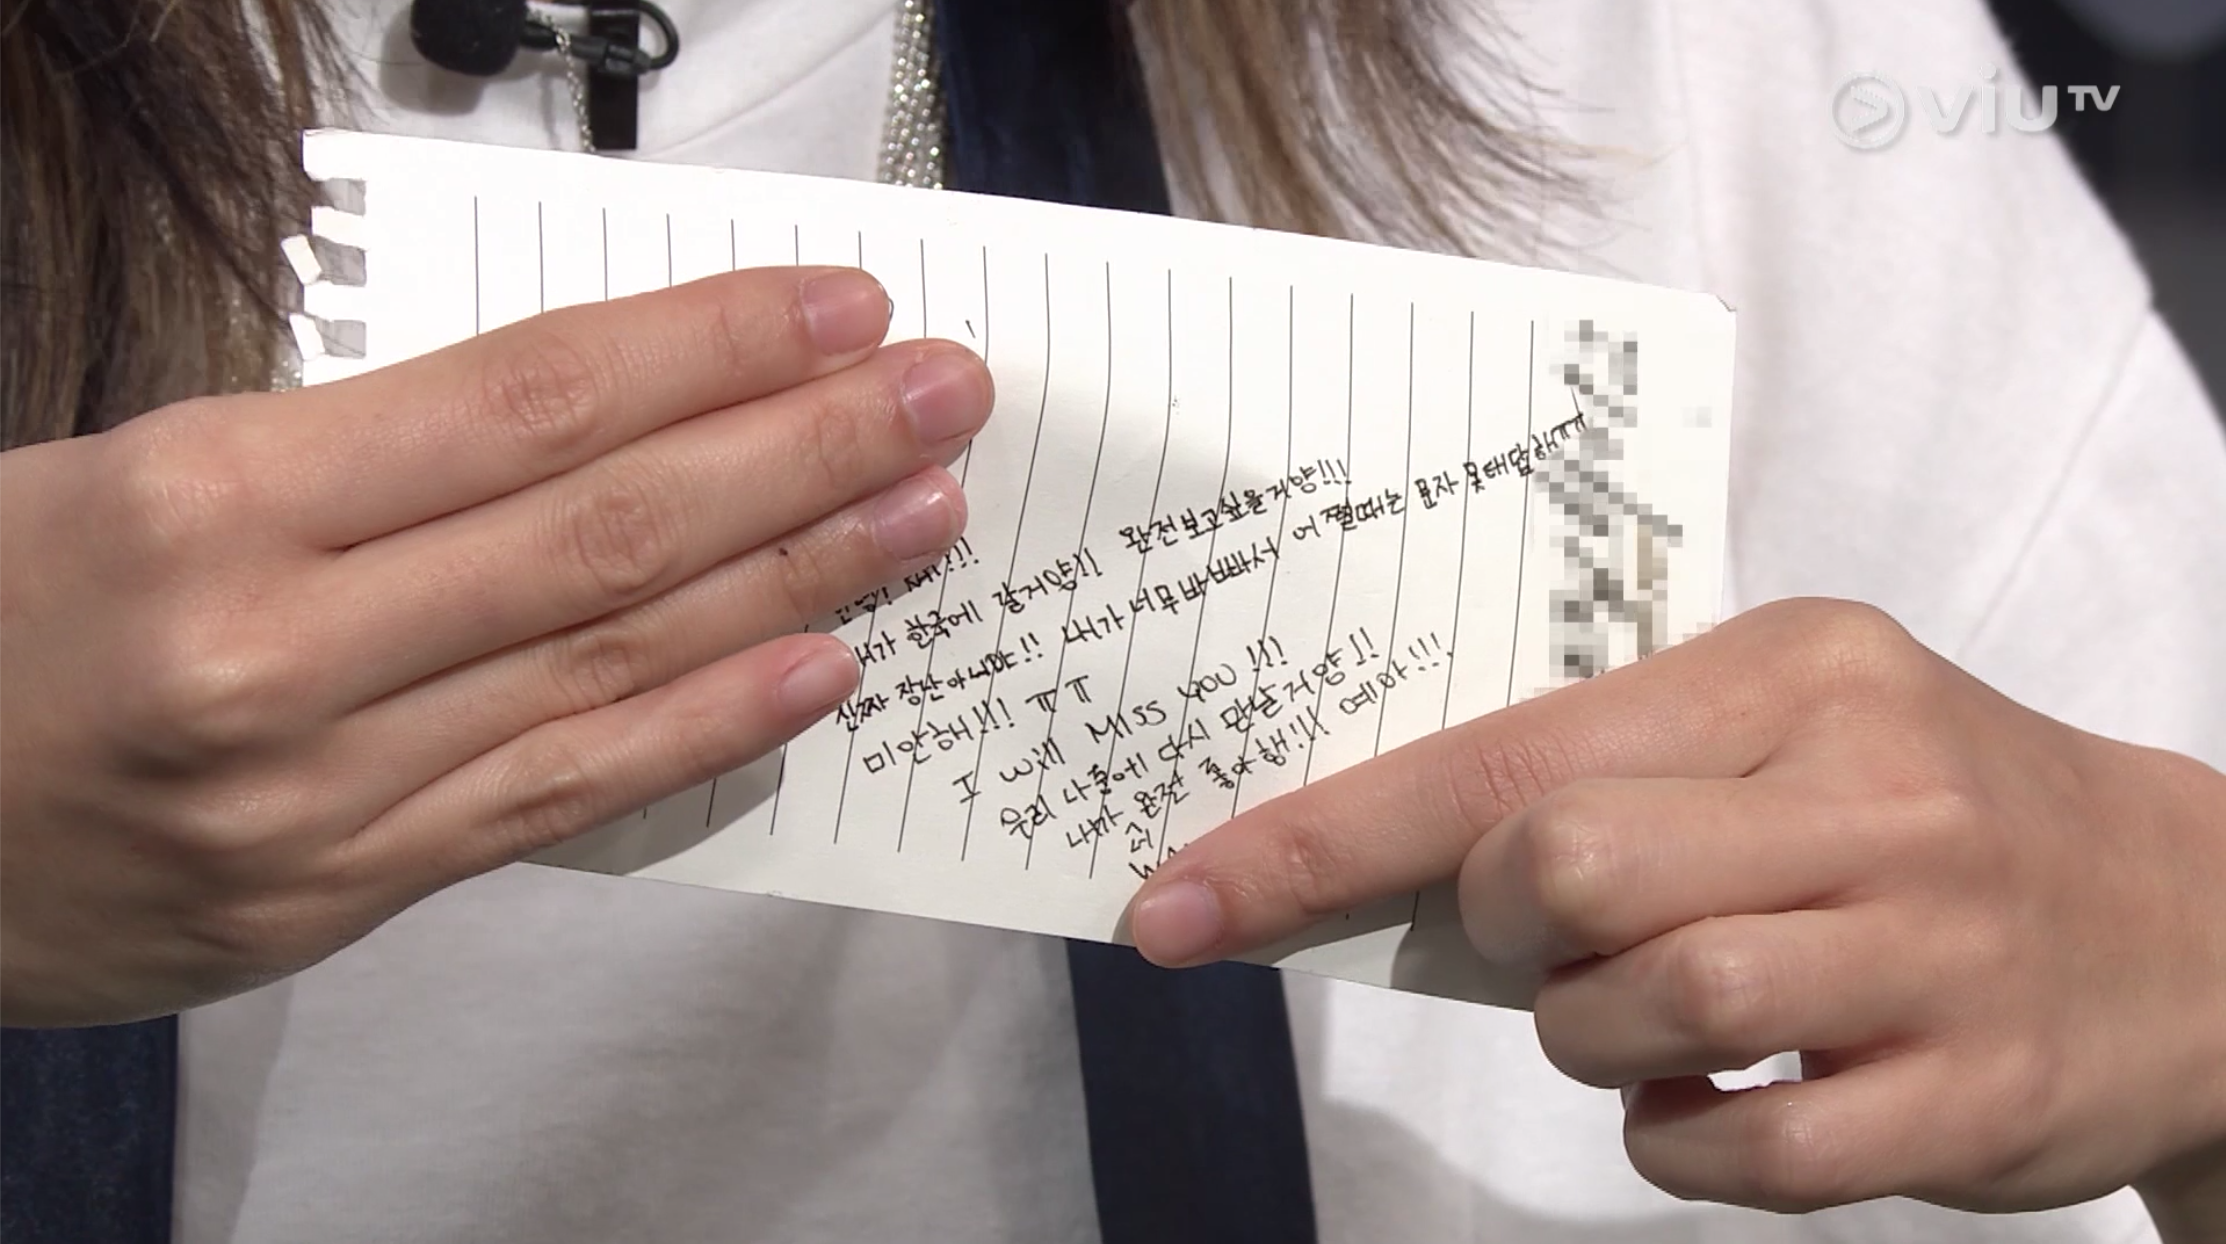 viu TV
한국에 갈거양!! 완전보고싶을거양!!!
진짜 장난아니야!! 내가 너무바빠서 어쩔때는 문자 못대답해ㅠㅠ
미안해!!! ㅠㅠ
I will MISS YOU!!!
우리 나중에 다시 만날거양!!
내가 완전 좋아행!!! 예아!!!